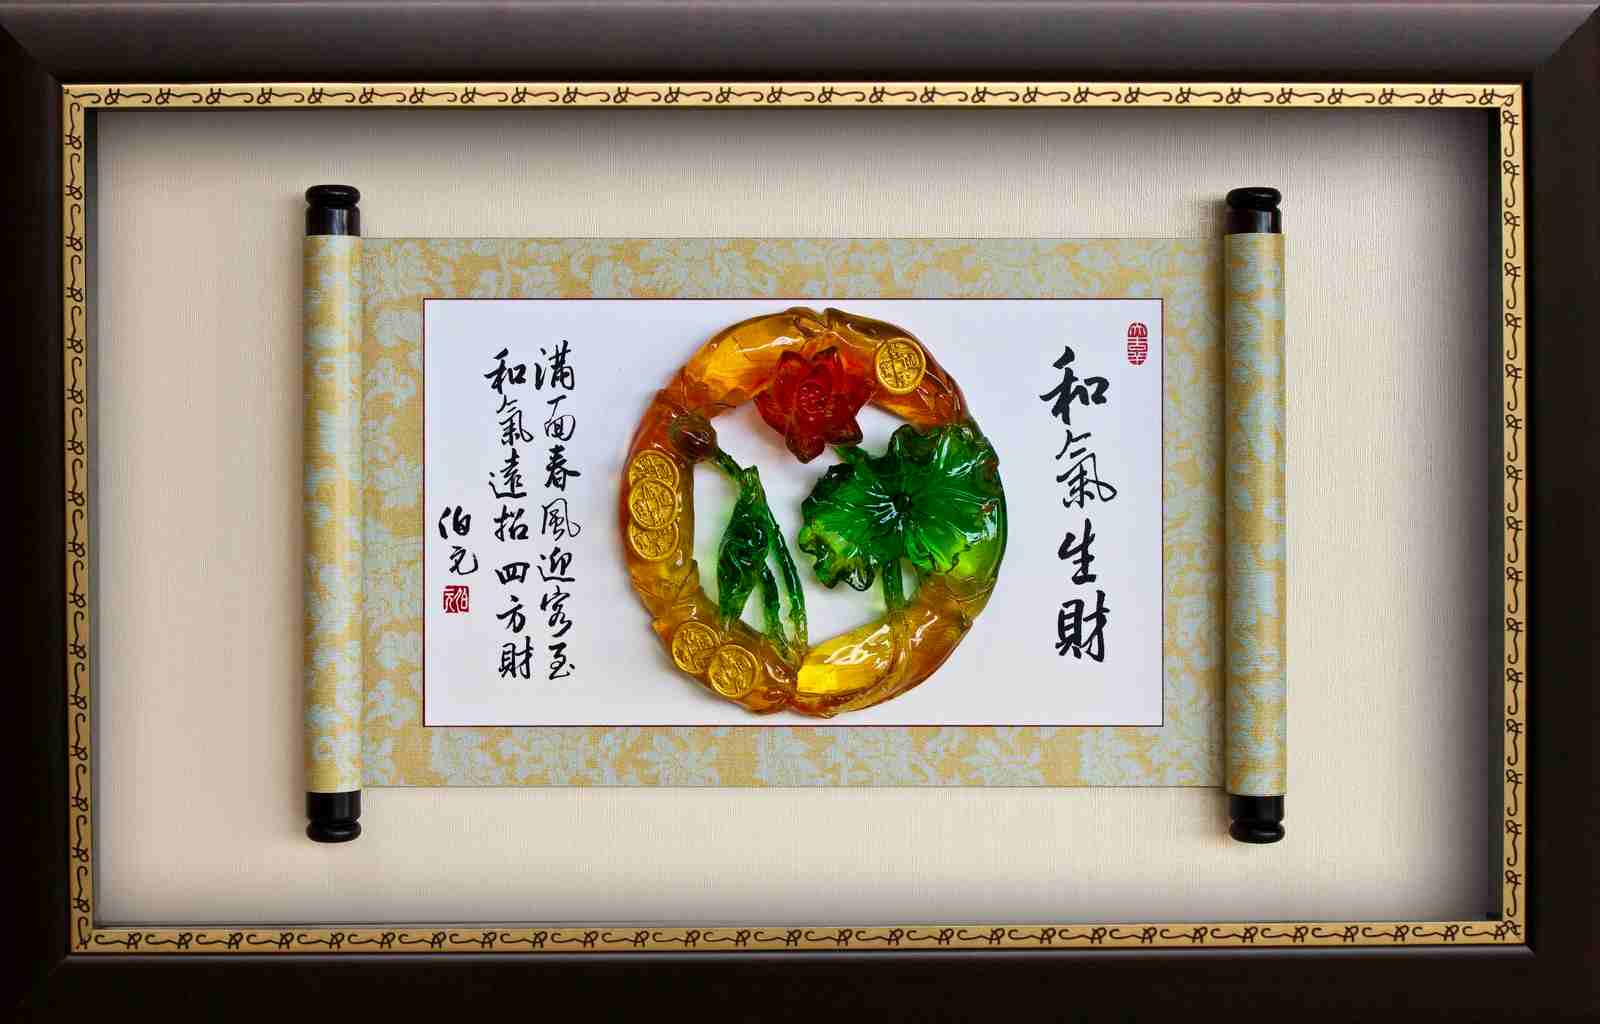 和氣生財
滿面春風迎客至
和氣遠招四方財
伯元
伯元